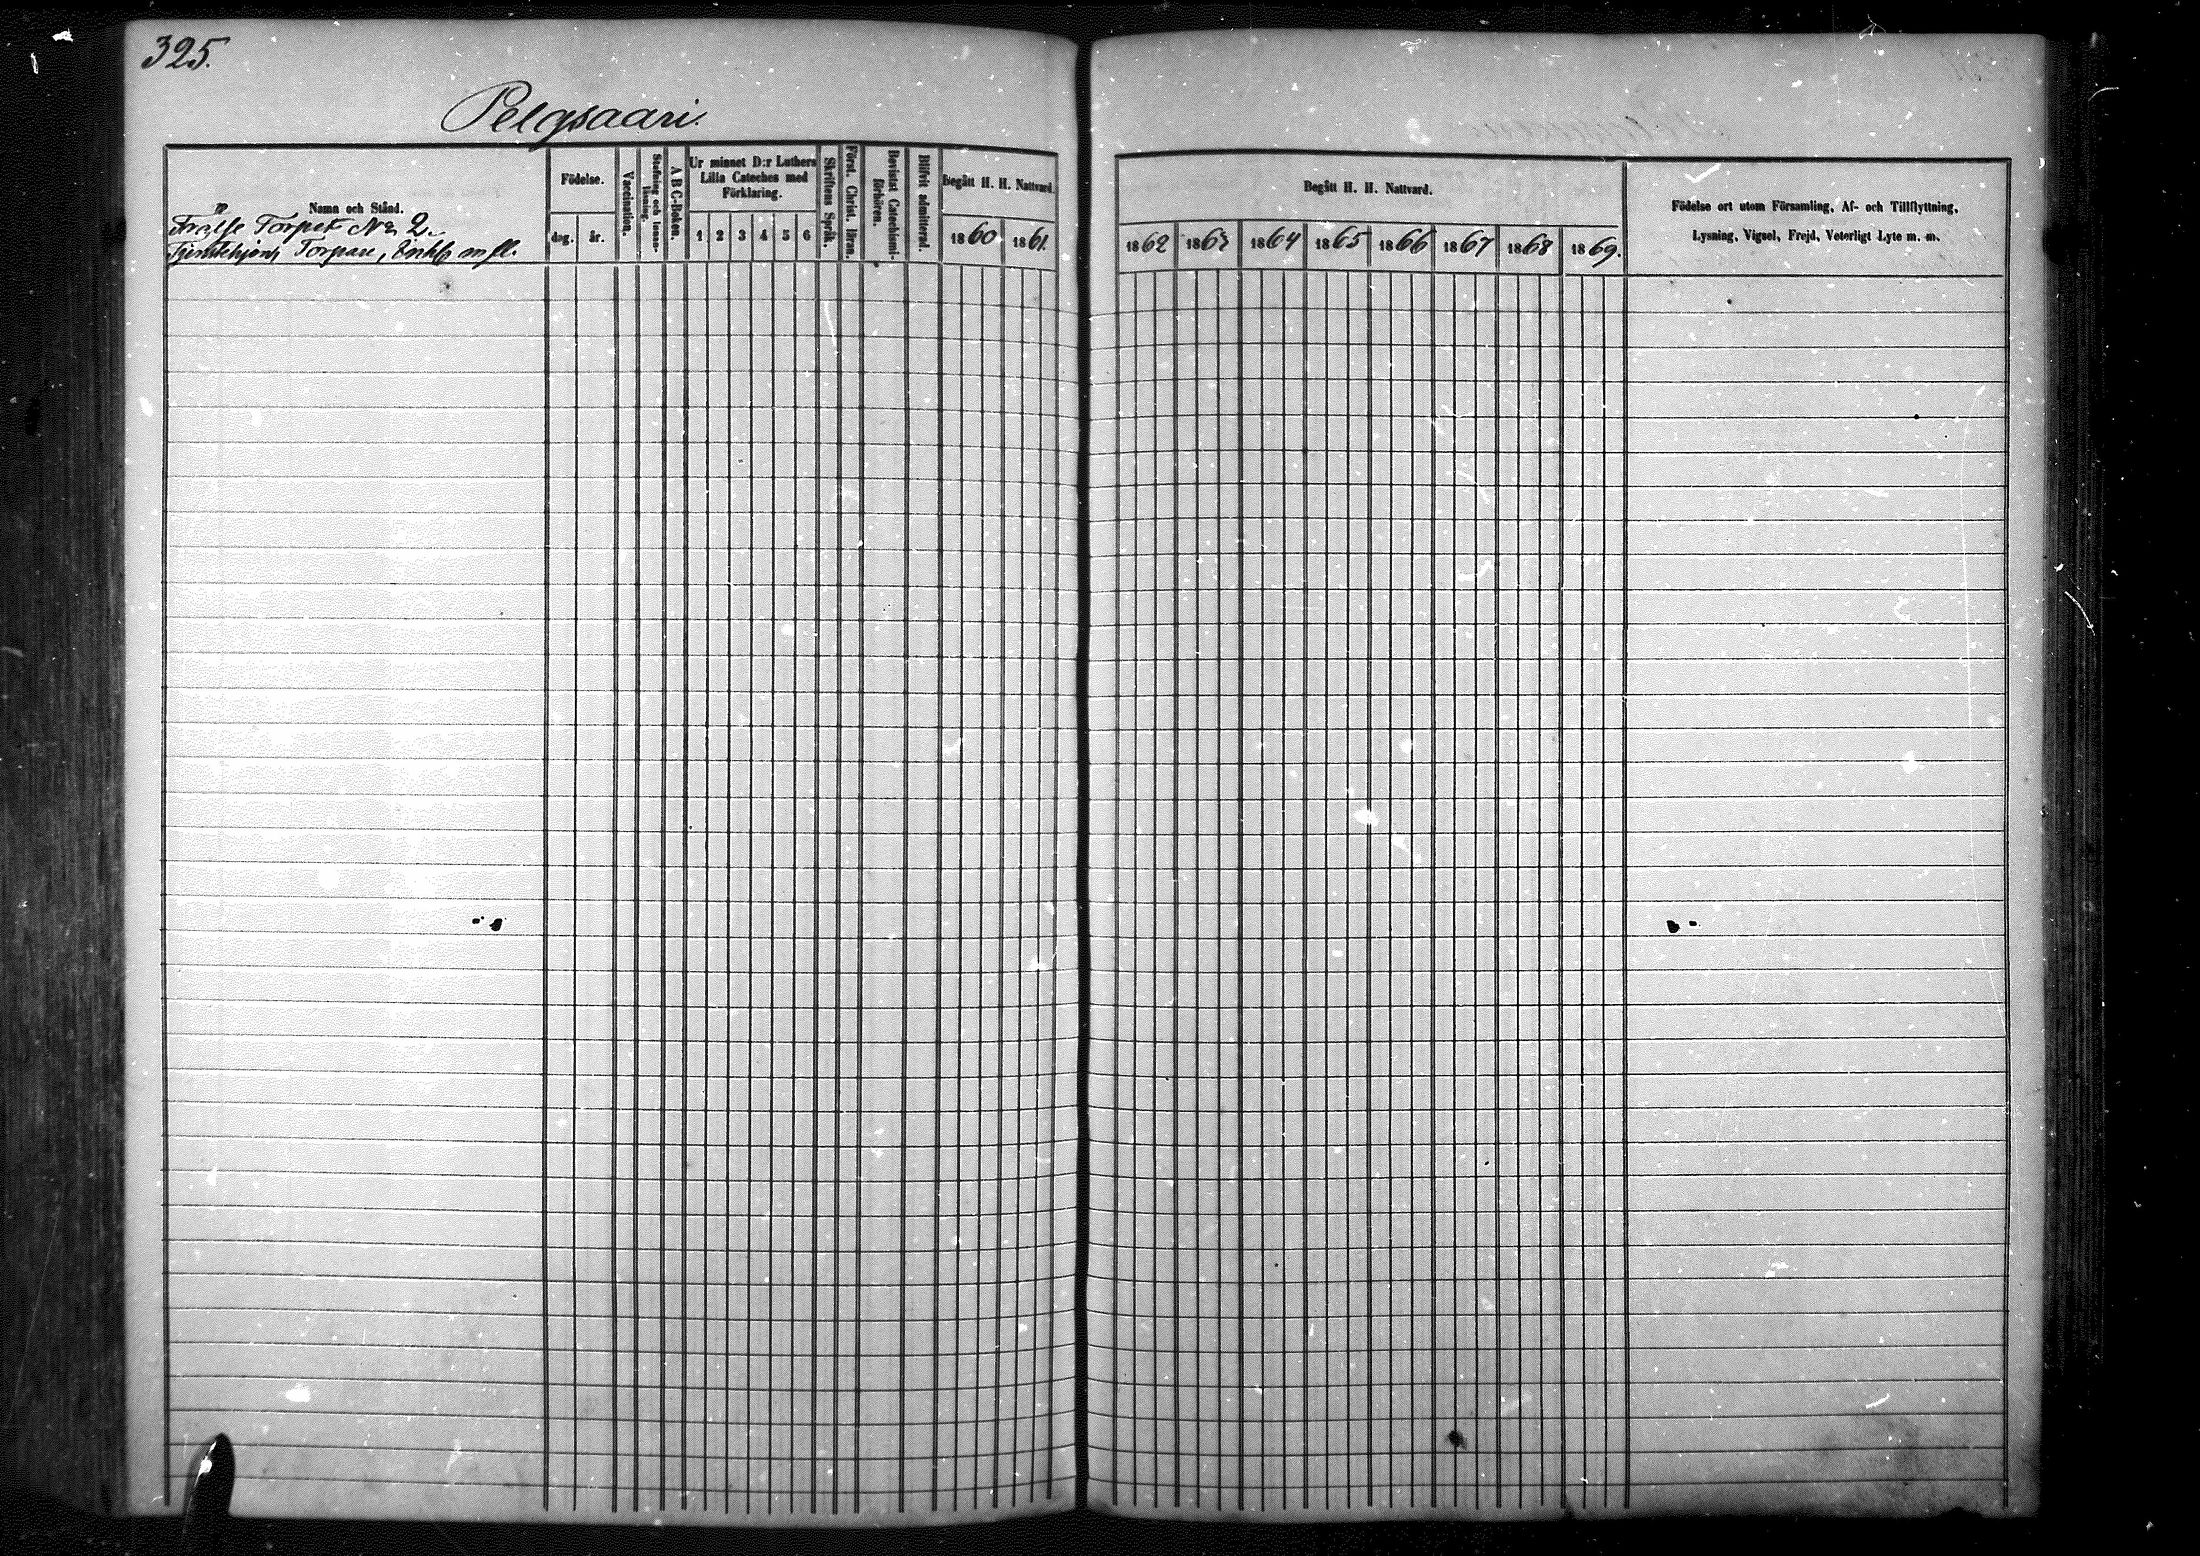 325.
Pelgsaari.
Namn och Stånd.
Frälse Torpet No 2.
Tjenstehjon, Torpare, Enkl. m fl.
Födelse.
dag. år.
Vaccination.
Stafning och Innanläsning.
A B C-Boken.
Ur minnet D:r Luthers
Lilla Cateches med
Förklaring.
1 2 3 4 5 6
Skriftens Språk.
Först. Christ. läran.
Bevistat Catechismi-
förhören.
Blifvit admitterad.
Begått H. H. Nattvard.
1860 1861.
Begått H. H. Nattvard.
1862 1863 1864 1865 1866 1867 1868 1869.
Födelse ort utom Församling, Af- och Tillflyttning,
Lysning, Vigsel, Frejd, Veterligt Lyte m. m.